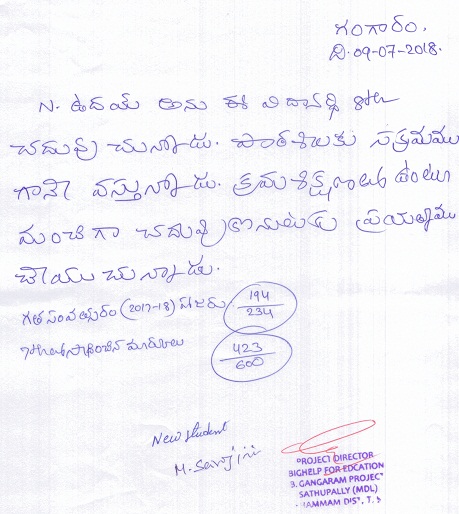 గంగారం,
ది. 09-07-2018.
N. ఉదయ్ అను ఈ విద్యార్థి 8th
చదువు చున్నాడు. పాఠశాలకు సక్రమము
గానే వస్తున్నాడు. క్రమశిక్షణలో ఉంటూ
మంచిగా చదువు కొనుటకు ప్రయత్నము
చేయు చున్నాడు.
గత సంవత్సరం (2017-18) హాజరు 194/234
7th లో సాధించిన మార్కులు 423/600
New student
M. Sarojini
PROJECT DIRECTOR
BIGHELP FOR EDCATION
B. GANGARAM PROJECT
SATHUPALLY (MDL)
HAMMAM DIST, T.S